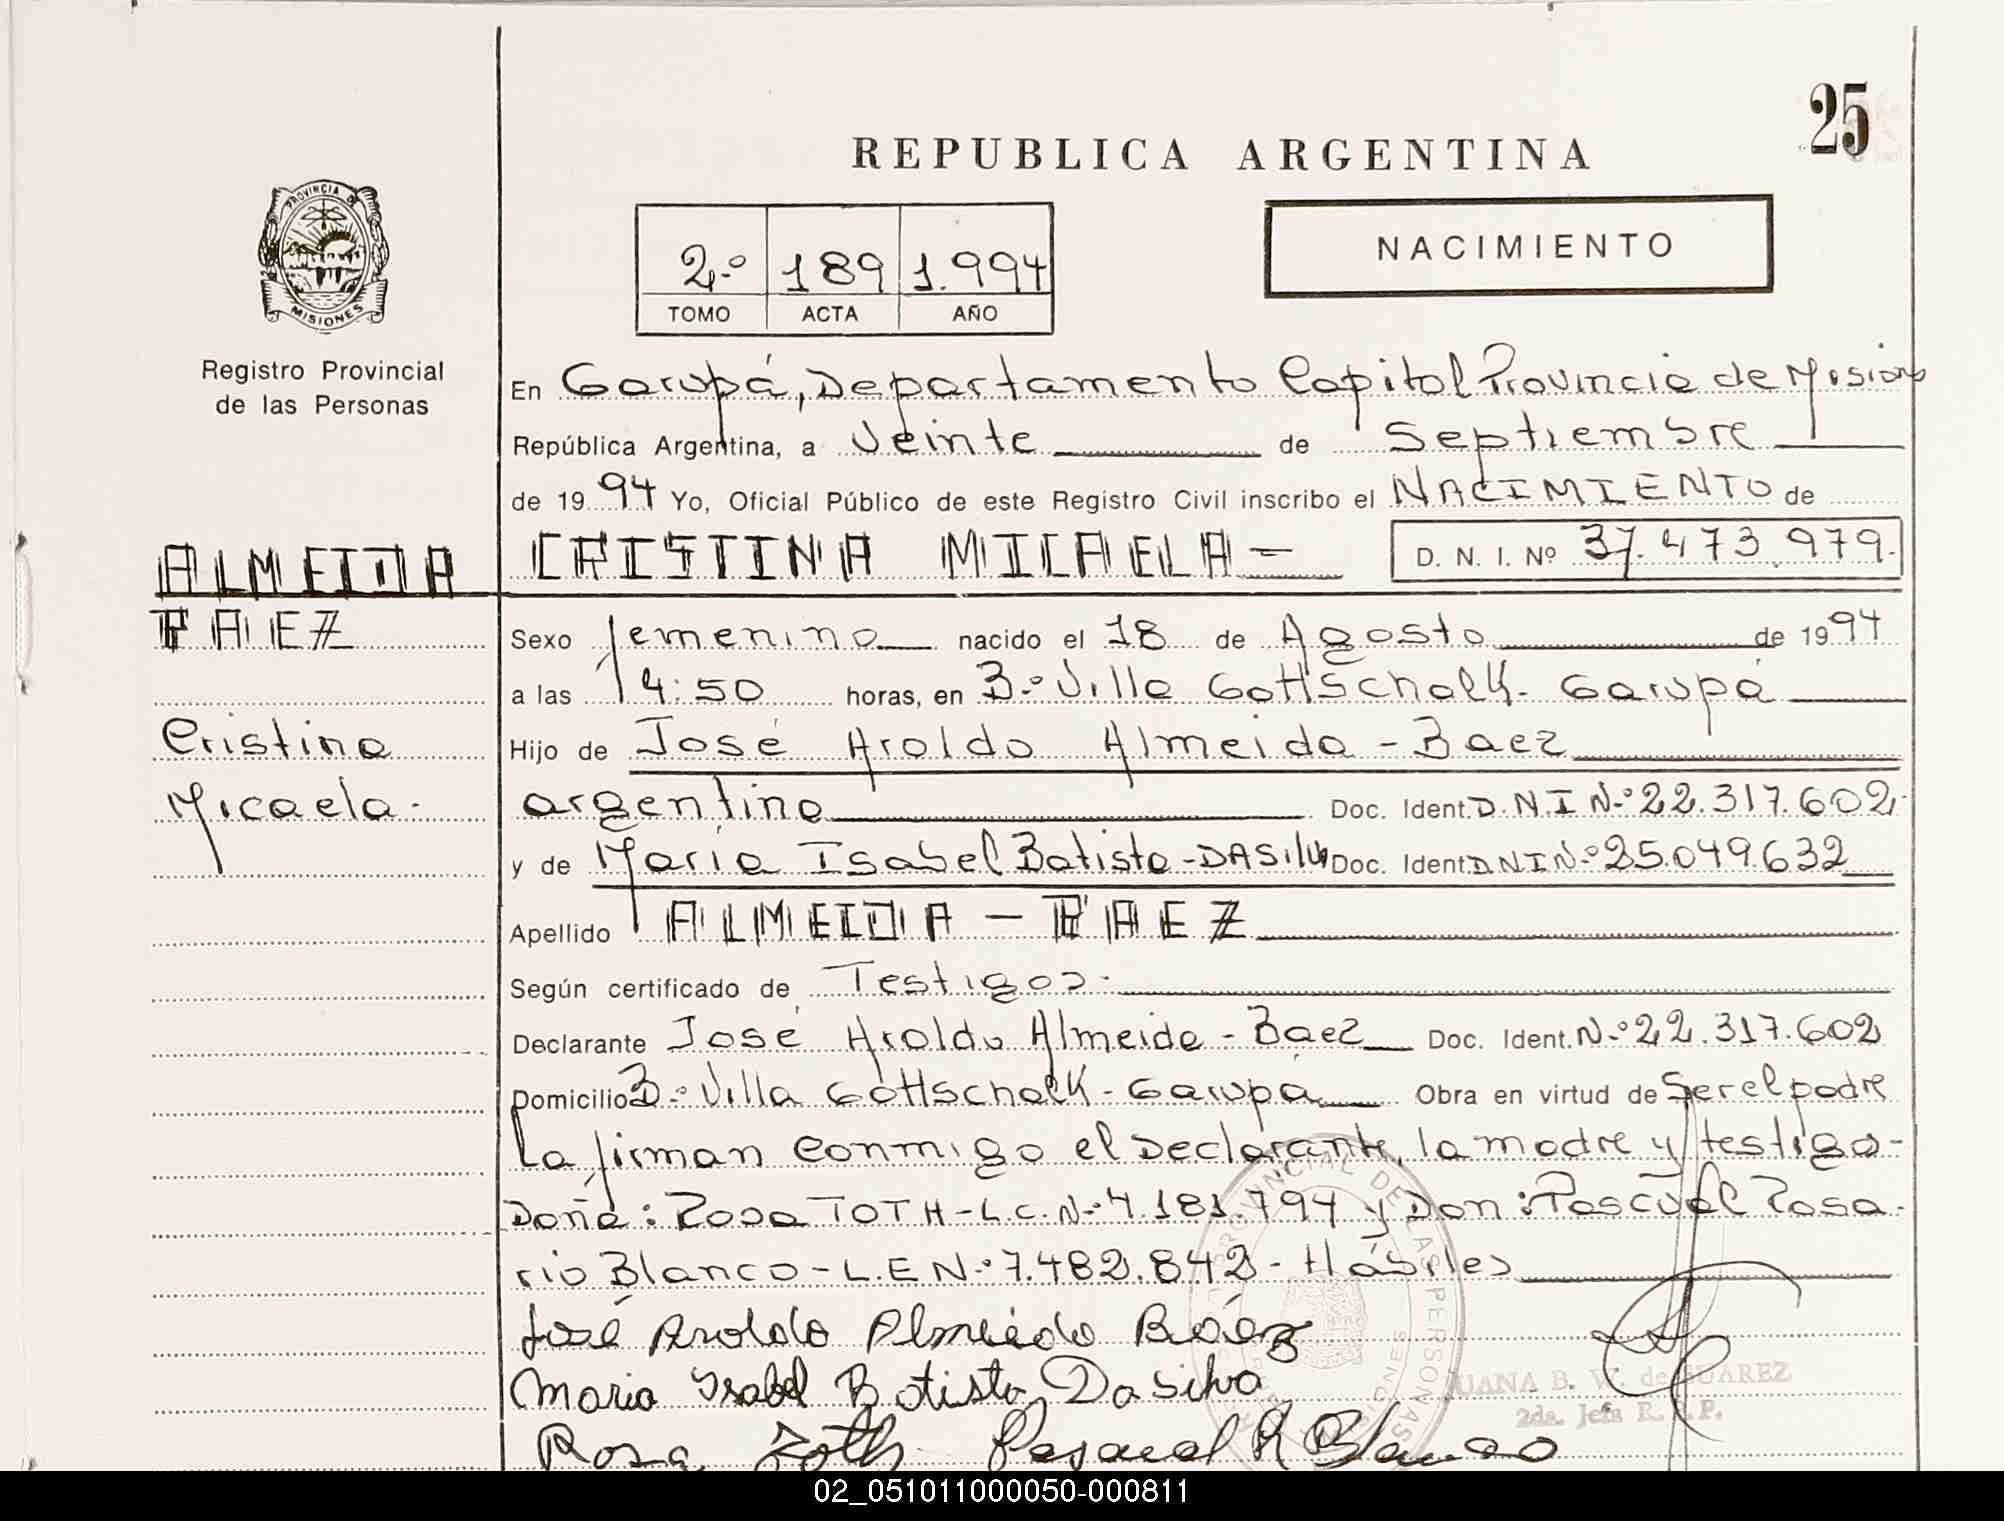 25
REPUBLICA ARGENTINA
PROVINCIA DE
MISIONES
Registro Provincial
de las Personas
2.º 189 1.994
TOMO ACTA AÑO
NACIMIENTO
En Garupá, Departamento Capital Provincia de Misiones
República Argentina, a Veinte de Septiembre
de 1994 Yo, Oficial Público de este Registro Civil inscribo el NACIMIENTO de
ALMEIDA CRISTINA MICAELA - D. N. I. Nº 37.473.979.
BAEZ
Sexo femenino nacido el 18 de Agosto de 1994
a las 14:50 horas, en B.º Villa Gottschalk - Garupá
Cristina
Hijo de José Aroldo Almeida - Baez
Micaela.
argentino Doc. Ident. D.N.I N.º 22.317.602
y de María Isabel Batista - DASilva Doc. Ident DNIN.º 25.049.632
Apellido ALMEIDA - BAEZ
Según certificado de Testigos.
Declarante José Aroldo Almeida - Báez Doc. Ident. N.º 22.317.602
Domicilio B.º Villa Gottschalk - Garupá Obra en virtud de Ser el padre
La firman conmigo el Declarante, la madre y testigo-
Doña: Rosa TOTH - L.C. N.º 4.181.794 y Don: Pascual Rosa-
rio Blanco - L.E N.º 7.482.842 - Hábiles
José Aroldo Almeida Báez
Maria Isabel Batista Da Silva
JUANA B. W. de SUAREZ
2da. Jefa R. P. P.
Rosa Toth Pascual R Blanco
02_051011000050-000811